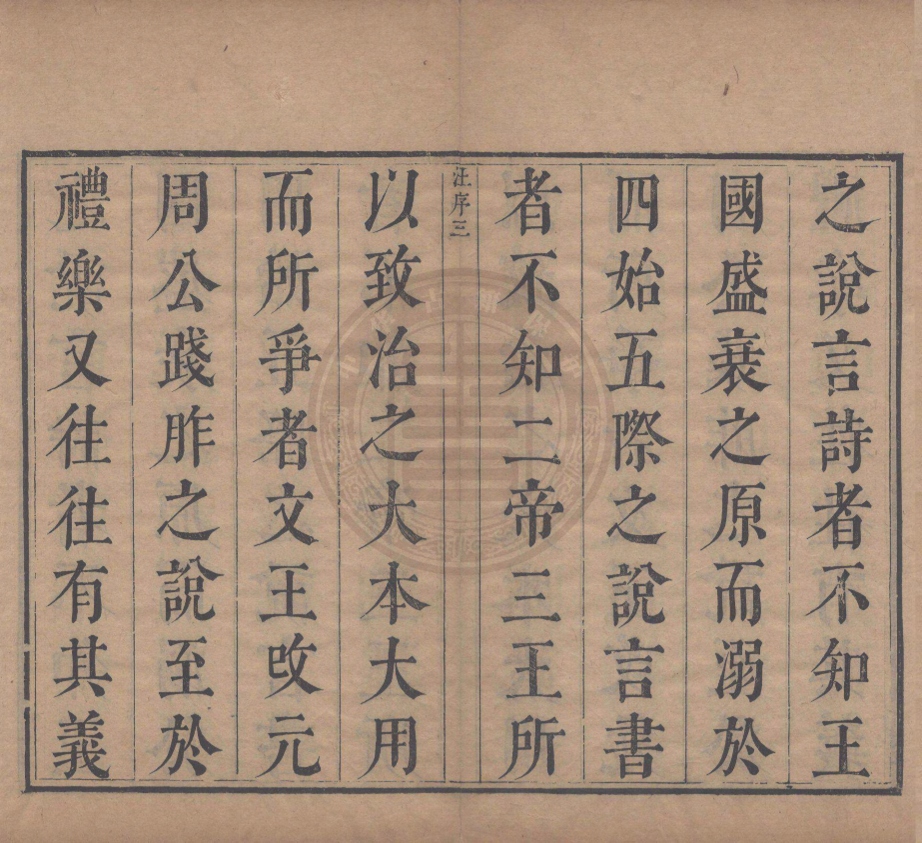 之說言詩者不知王
國盛衰之原而溺於
四始五際之說言書
者不知二帝三王所
汪序三
以致治之大本大用
而所爭者文王攺元
周公踐胙之說至於
禮樂又往往有其義